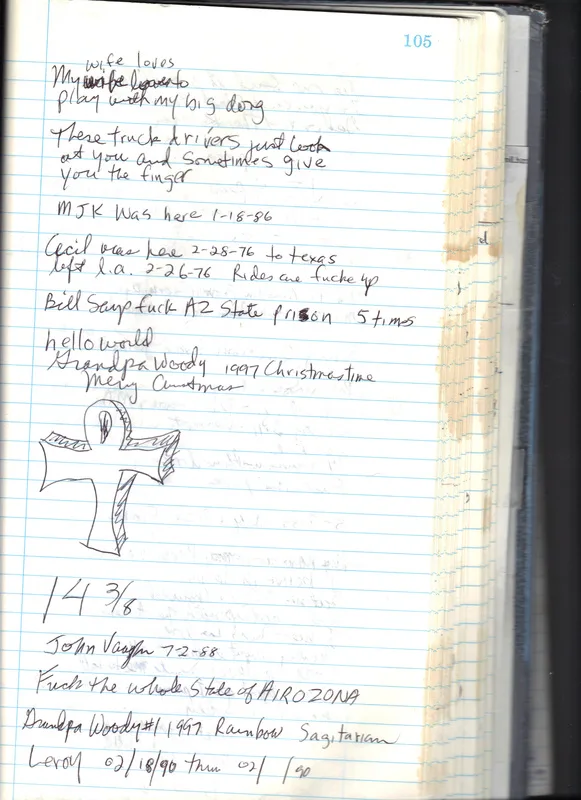 105
wife loves
My to
play with my big dong
These truck drivers just look
at you and sometimes give
you the finger
MJK Was here 1-18-86
Cecil was here 2-28-76 to texas
left l.a. 2-26-76 Rides are fucke up
Bill Says fuck AZ State prison 5 times
hello world
Grandpa Woody 1997 Christmastime
Merry Christmas
14 3/8
John Vaughn 7-2-88
Fuck the whole State of AIROZONA
Grandpa Woody #1 1997 Rainbow Sagitarian
Leroy 02/18/90 thru 02/ /90